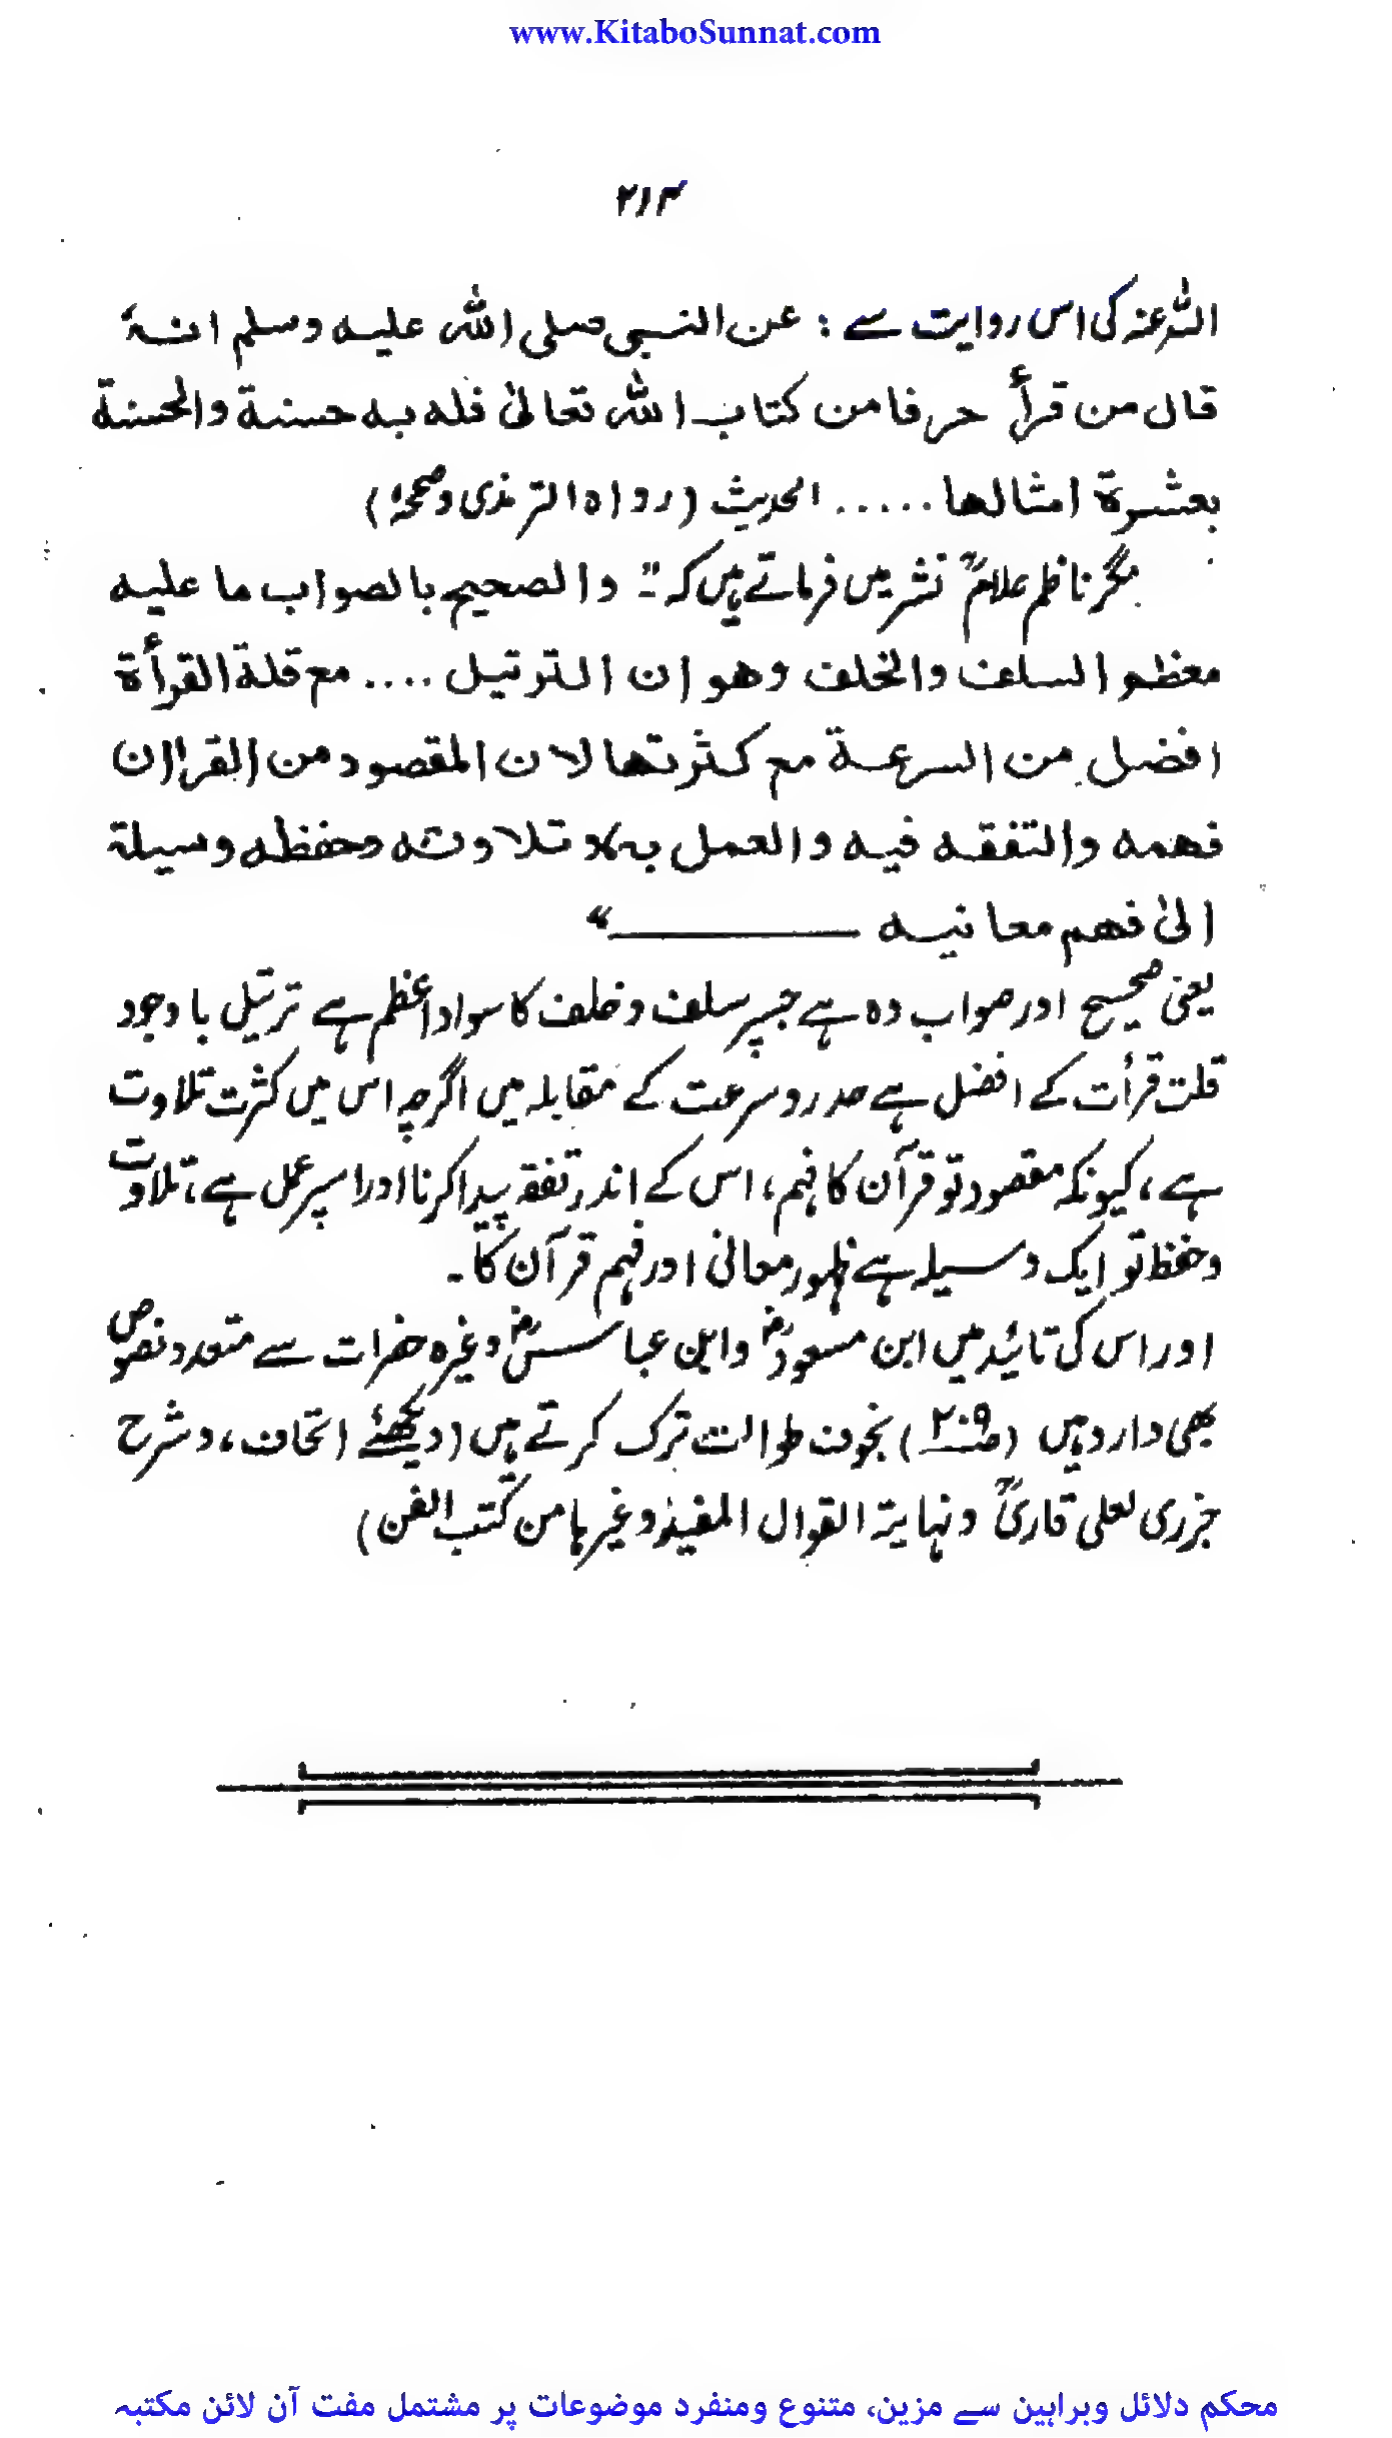 www.KitaboSunnat.com
۲۱۴
اللہ عنہ کی اس روایت سے : عن النبی صلی اللہ علیہ وسلم انہٗ
قال من قرأ حرفا من کتاب اللہ تعالیٰ فلہ بہ حسنة والحسنة
بعشرة امثالھا ..... الحدیث (رواہ الترمذی وصححہٗ)
مگر ناظم علامؒ نشر میں فرماتے ہیں کہ :" والصحیح بالصواب ما علیہ
معظم السلف والخلف وھو ان الترتیل .... مع قلة القرأة
افضل من السرعة مع کثرتھا لان المقصود من القراٰن
فھمہ والتفقہ فیہ والعمل بہ و تلاوتہ وحفظہ وسیلة
الیٰ فھم معانیہ ــــــــــــ "
یعنی صحیح اور صواب وہ ہے جسپر سلف و خلف کا سواد اعظم ہے ترتیل باوجود
قلت قرأت کے افضل ہے حدر و سرعت کے مقابلہ میں اگرچہ اس میں کثرت تلاوت
ہے، کیونکہ مقصود تو قرآن کا فہم، اس کے اندر تفقہ پیدا کرنا اور اسپر عمل ہے، تلاوت
وحفظ تو ایک وسیلہ ہے ظہور معانی اور فہم قرآن کا۔
اور اس کی تائید میں ابن مسعودؓ وابن عباسؓ وغیرہ حضرات سے متعدد نصوص
بھی وارد ہیں (صـ۲۰۹) بخوف طوالت ترک کرتے ہیں (دیکھئے اتحاف، و شرح
جزری لعلی قاریؒ و نہایۃ القول المفید وغیرہا من کتب الفن)
محکم دلائل وبراہین سے مزین، متنوع ومنفرد موضوعات پر مشتمل مفت آن لائن مکتبہ